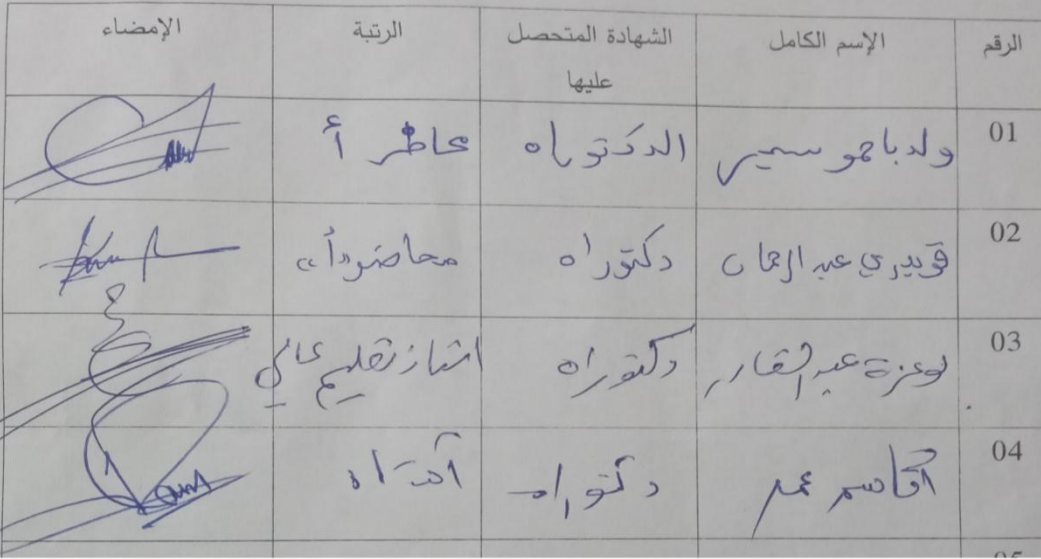 الرقم الإسم الكامل الشهادة المتحصل عليها الرتبة الإمضاء
01 ولدباحمو سمير الدكتوراه محاضر أ
02 قويدري عبد الرحمان دكتوراه محاضر "أ"
03 بوعزة عبد القادر دكتوراه استاذ تعليم عالي
04 أقاسم عمر دكتوراه
05